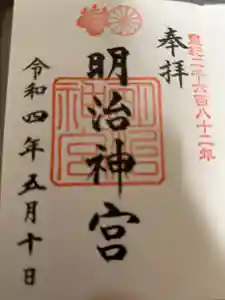 皇紀二千六百八十二年
奉拝
明治神宮
明治
神宮
令和四年五月十日